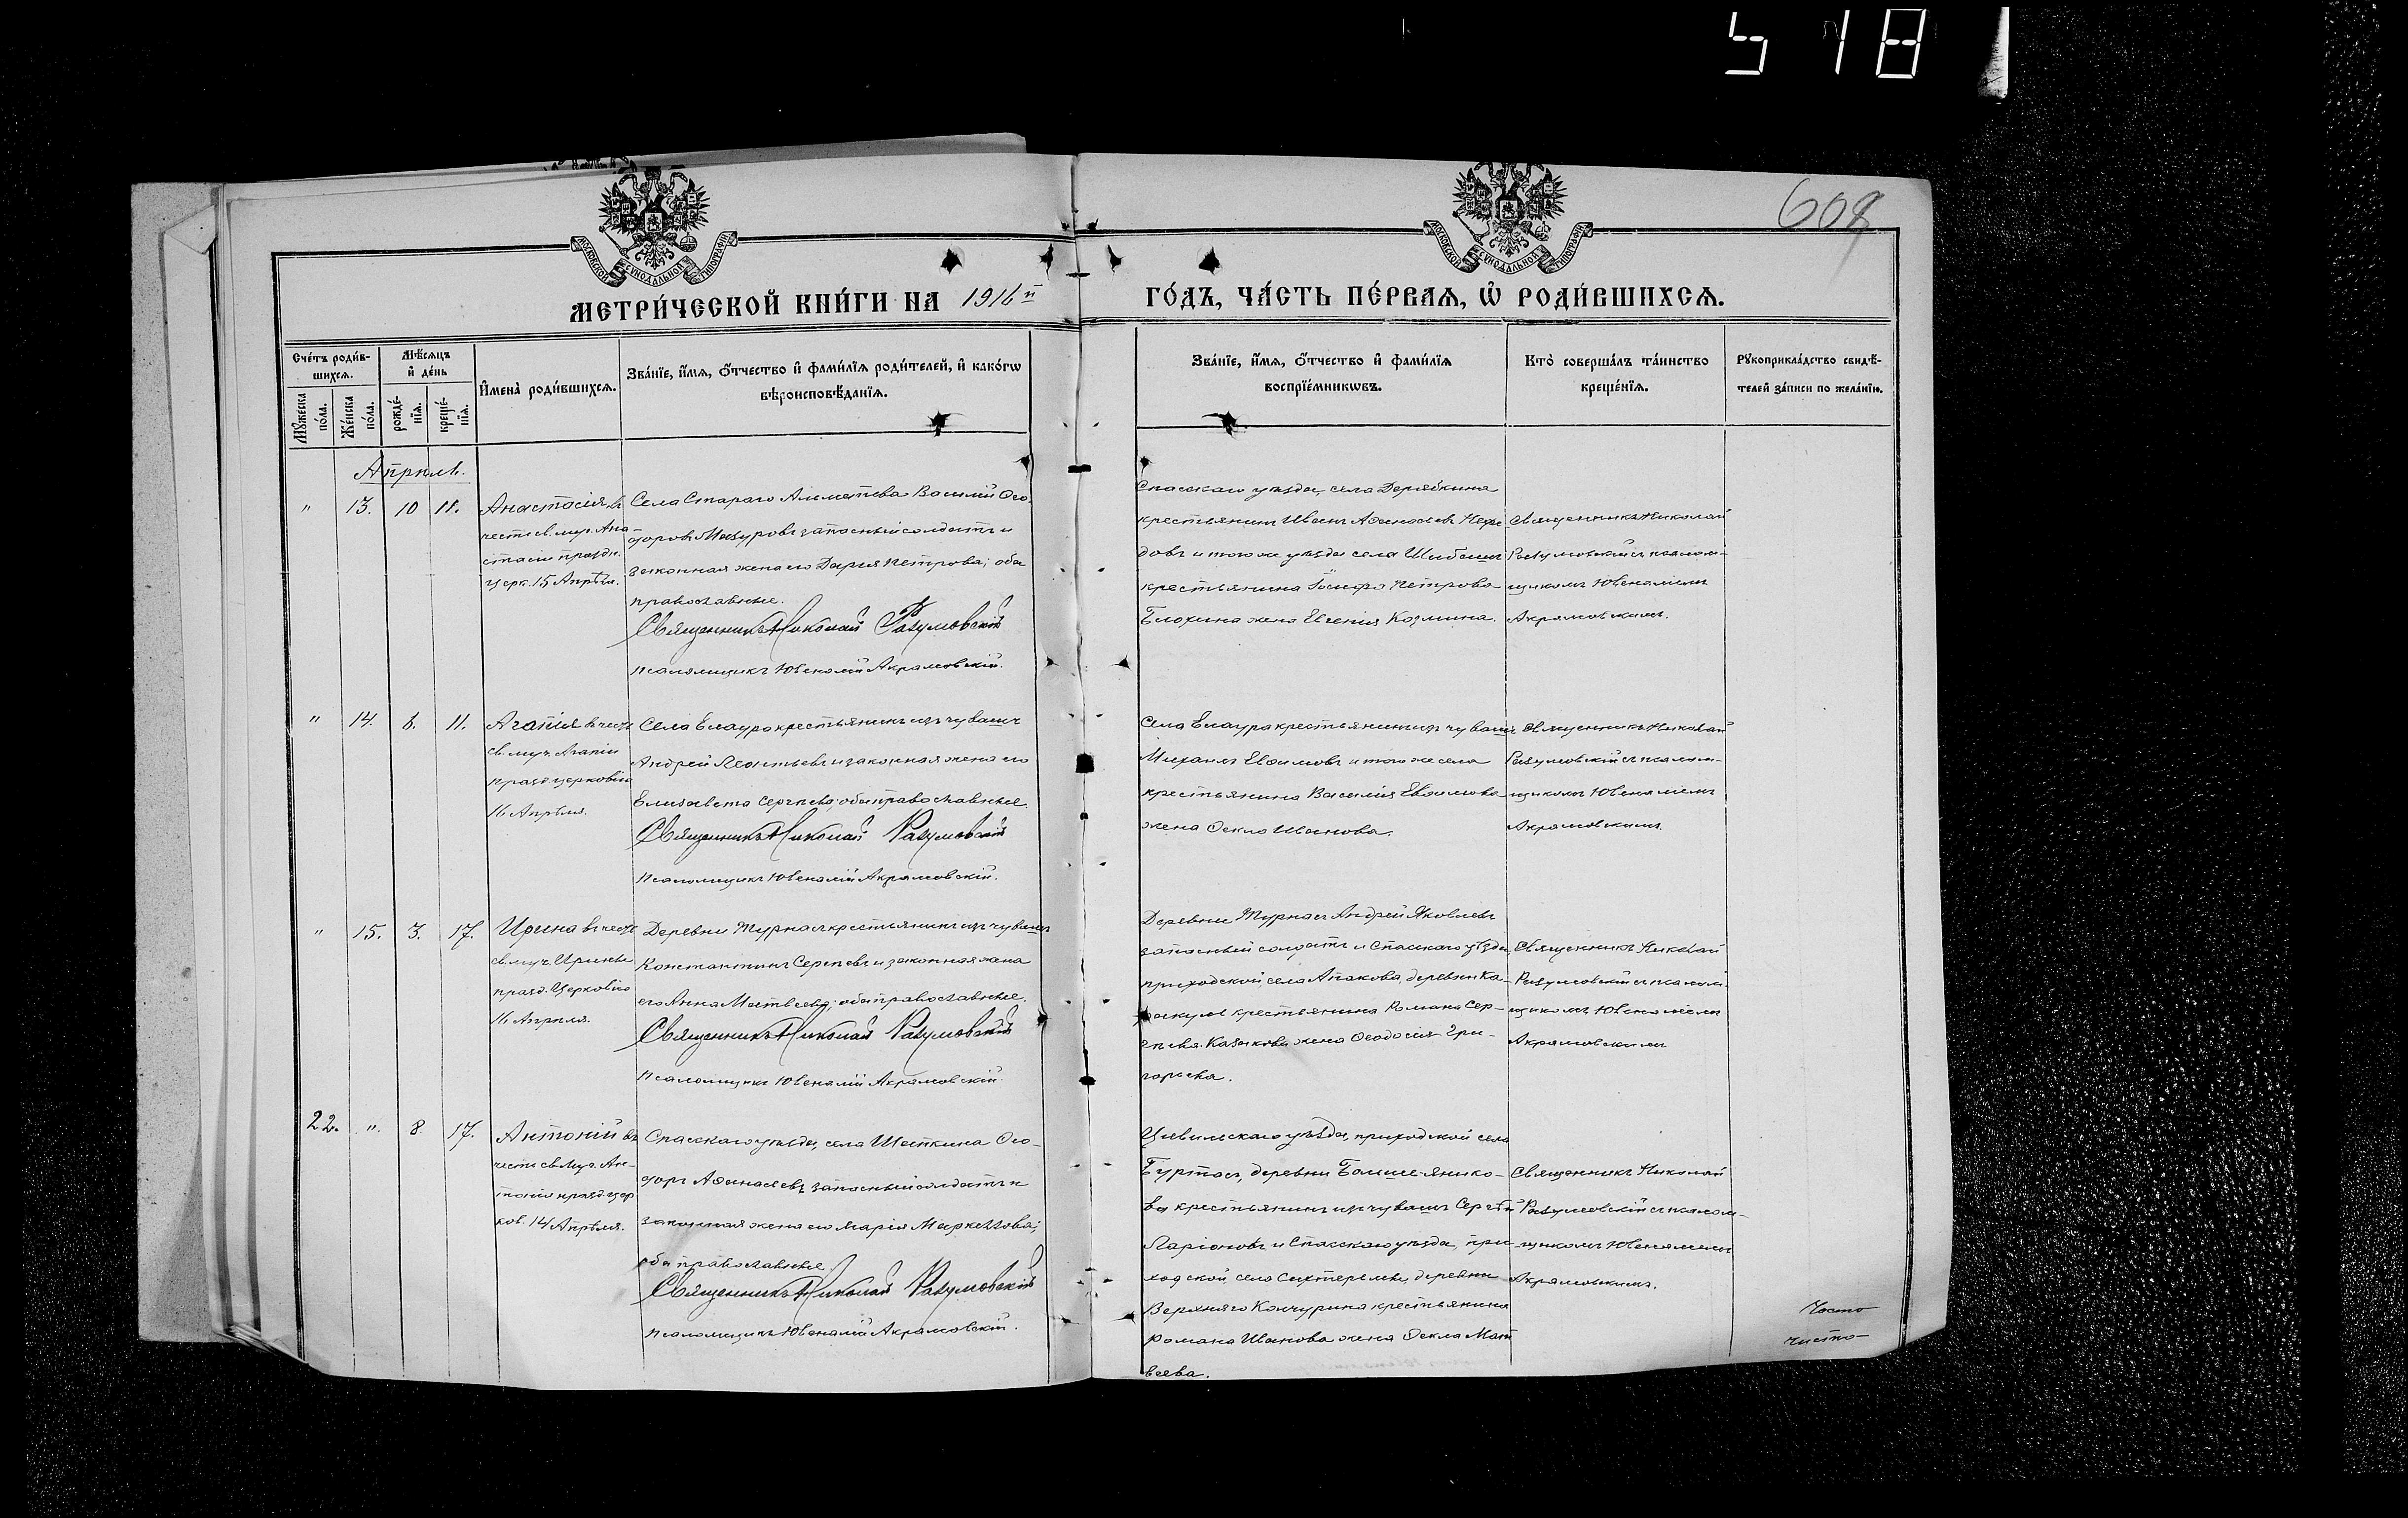 5 18
608
МОСКОВСКОЙ СѴНОДАЛЬНОЙ ТИПОГРАФІИ
МОСКОВСКОЙ СѴНОДАЛЬНОЙ ТИПОГРАФІИ
МЕТРИ́ЧЕСКОЙ КНИ́ГИ НА 1916 й
ГО́ДЪ, ЧА́СТЬ ПЕ́РВАѦ, Ѡ҆ РОДИ́ВШИХСѦ.
Сче́тъ роди́в-
шихсѧ.
Мꙋ́жеска по́ла.
Же́нска по́ла.
Мѣ́сѧцъ
и҆ де́нь
рожде́-
нїѧ.
креще́-
нїѧ.
И҆мена̀ роди́вшихсѧ.
Зва́нїе, и҆́мѧ, ѻ҆́тчество и҆ фами́лїѧ роди́телей, и҆ како́гѡ
вѣроисповѣ́данїѧ.
Зва́нїе, и҆́мѧ, ѻ҆́тчество и҆ фами́лїѧ
воспрїе́мникѡвъ.
Кто̀ соверша́лъ та́инство
креще́нїѧ.
Рꙋкоприкла́дство свидѣ́-
телей за́писи по жела́нїю.
Апрѣль.
" 13. 10 11.
Анастасія, въ
честь св. муч. Ана
стасіи праздн.
церк. 15 Апрѣля.
Села Стараго Альметева Василій Ѳео-
доровъ Мазуровъ запасный солдатъ и
законная жена его Дарія Петрова; оба
православные.
Священникъ Николай Разумовскій
Псаломщикъ Ювеналій Акрамовскій.
Спасскаго уѣзда, села Дерябкина
крестьянинъ Иванъ Аѳанасьевъ
довъ и того же уѣзда села
крестьянина Іосифа Петрова
Блохина жена Евгенія Козмина.
Священникъ Николай
Разумовскій съ псалом-
щикомъ Ювеналіемъ
Акрамовскимъ.
" 14. 8. 11.
Агапія въ честь
св. муч. Агапіи
празд. церковію
16 Апрѣля.
Села Елаура крестьянинъ изъ чувашъ
Андрей Леонтьевъ и законная жена его
Елизавета Сергѣева; оба православные.
Священникъ Николай Разумовскій
Псаломщикъ Ювеналій Акрамовскій.
Села Елаура крестьянинъ изъ чувашъ
Михаилъ Евѳимовъ и того же села
крестьянина Василія Евѳимова
жена Ѳекла Иванова.
Священникъ Николай
Разумовскій съ псалом-
щикомъ Ювеналіемъ
Акрамовскимъ.
" 15. 3. 17.
Ирина въ честь
св. муч. Ирины
празд. Церковію
16 Апрѣля.
Деревни Турнасъ крестьянинъ изъ чувашъ
Константинъ Сергѣевъ и законная жена
его Анна Матвеева; оба православные.
Священникъ Николай Разумовскій
Псаломщикъ Ювеналій Акрамовскій
Деревни Турнасъ Андрей Яковлевъ
запасный солдатъ и Спасскаго уѣзда,
приходской села Апакова, деревни Ка-
крестьянина Романа Сер-
гѣева Казакова жена Ѳеодосія Гри-
горьева.
Священникъ Николай
Разумовскій съ псалом-
щикомъ Ювеналіемъ
Акрамовскимъ
22. " 8. 17.
Антоній въ
честь св. Муч. Ан-
тонія празд. цер
ков. 14 Апрѣля.
Спасскаго уѣзда, села Шаткина Ѳео-
доръ Аѳанасьевъ запасный солдатъ и
законная жена его Марія Маркеллова;
оба православные.
Священникъ Николай Разумовскій
Псаломщикъ Ювеналій Акрамовскій.
Цивильскаго уѣзда, приходской села
Буртасъ, деревни Больше-Янико-
ва крестьянинъ изъ чувашъ Сергѣй
Ларіоновъ и Спасскаго уѣзда, при-
ходской села Сихтермы, деревни
Верхняго Качурина крестьянина
Романа Иванова жена Ѳекла Мат
веева.
Священникъ Николай
Разумовскій съ псалом-
щикомъ Ювеналіемъ
Акрамовскимъ.
Чисто